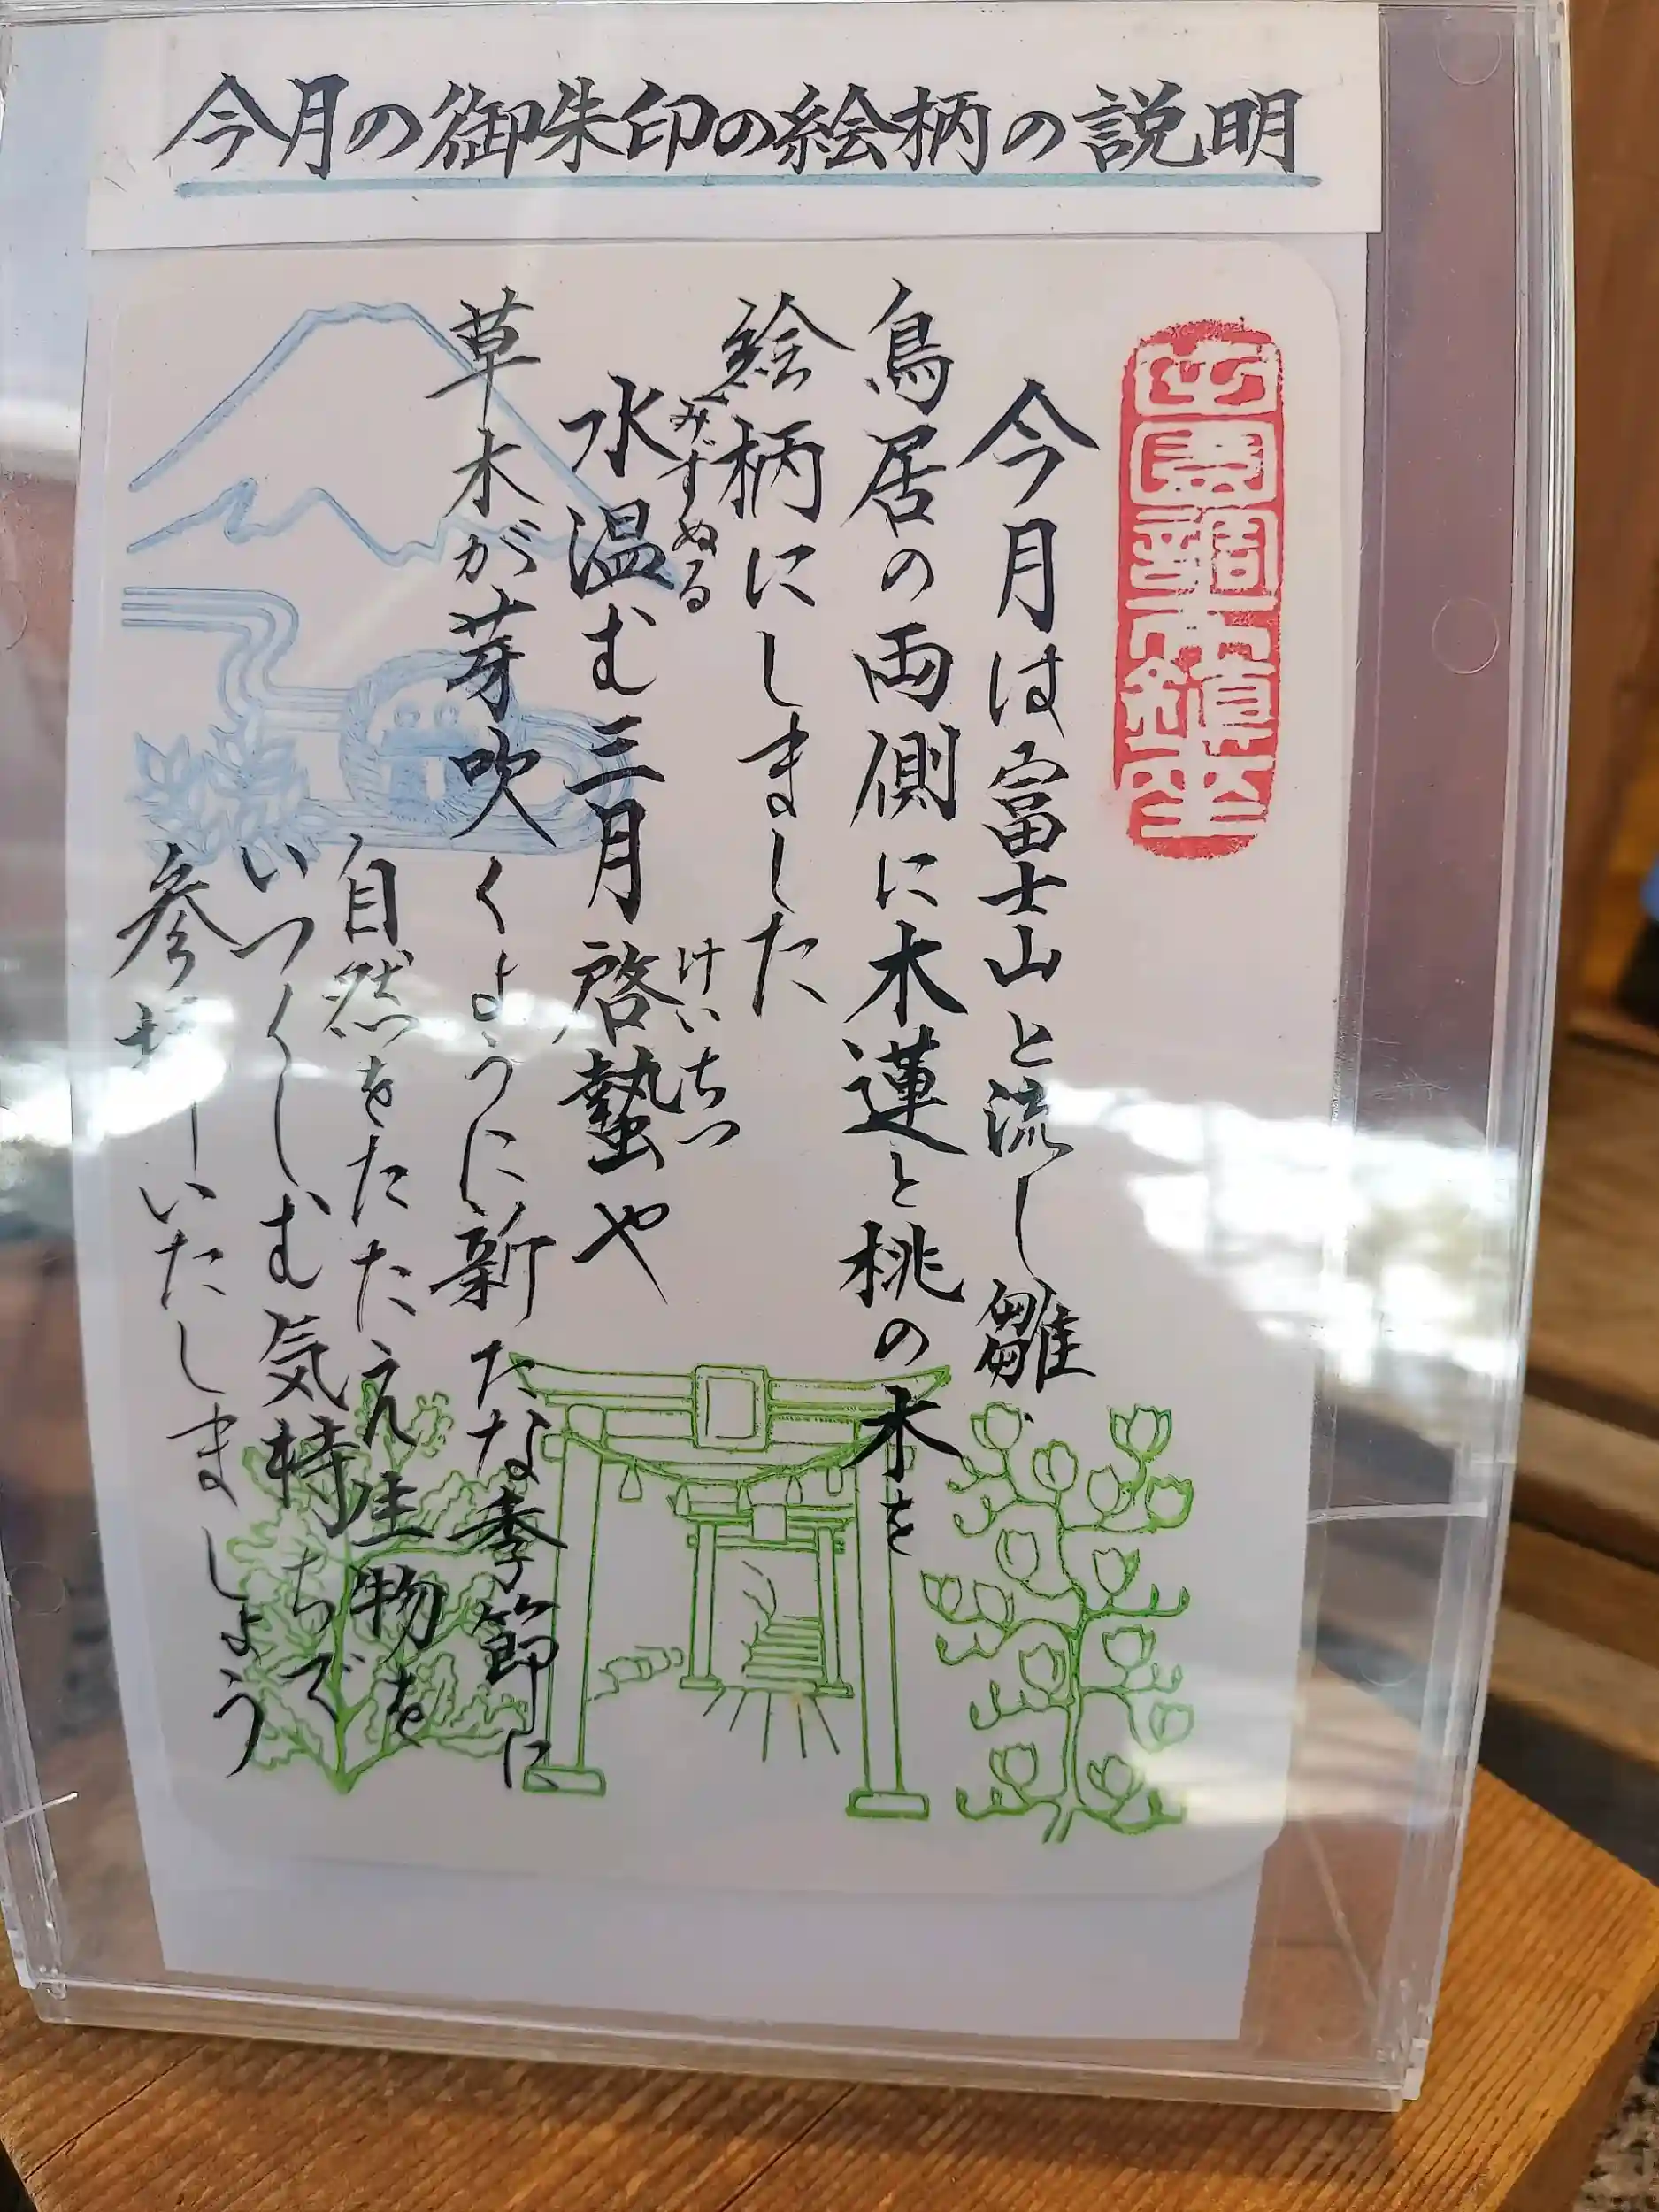 今月の御朱印の絵柄の説明
今月は富士山と流し雛
鳥居の両側に木蓮と桃の木を
絵柄にしました
みずぬる
けいちつ
水温む三月啓蟄や
草木が芽吹くように新たな季節に
自然をたたえ生物を
いつくしむ気持ちで
参拝いたしましょう